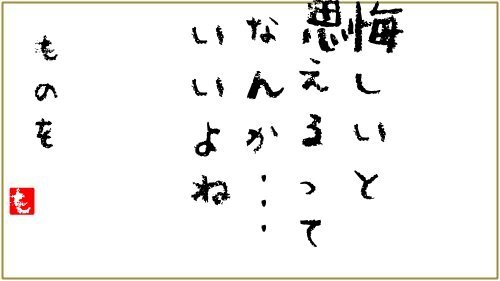 悔しいと
思えるって
なんか・・・
いいよね
ものを
も